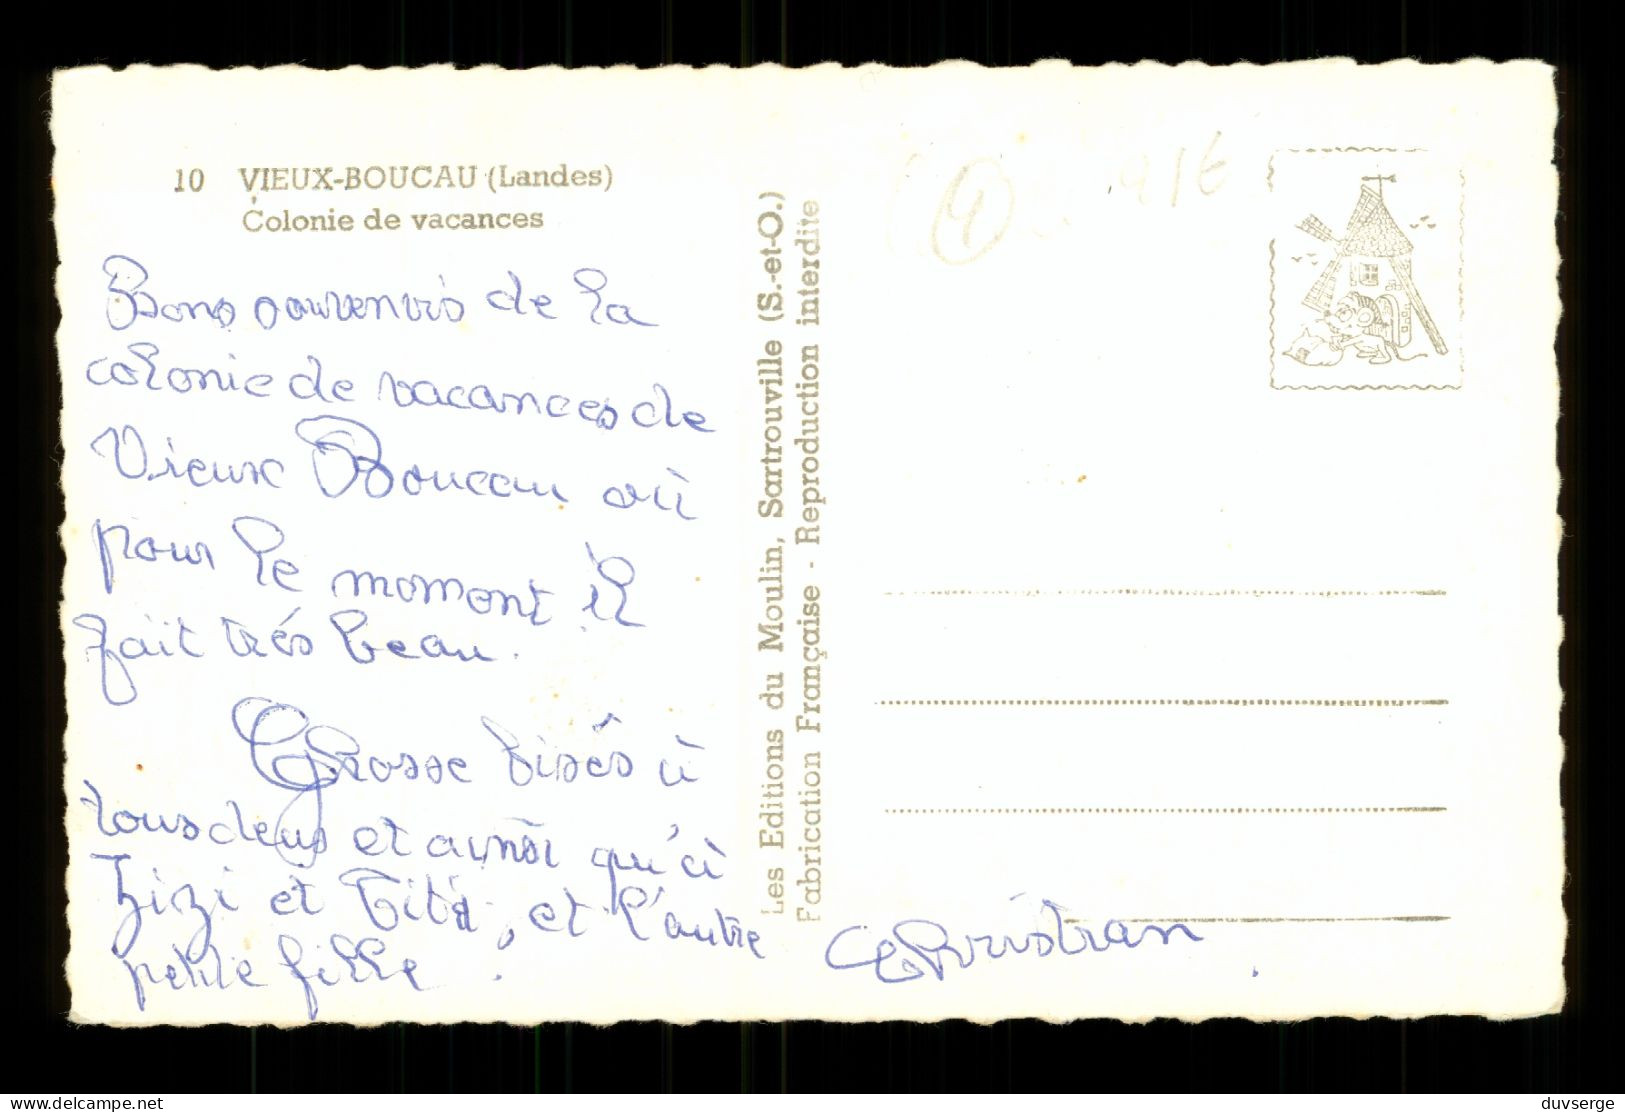 10 VIEUX-BOUCAU (Landes)
Colonie de vacances
Bons souvenirs de la
colonie de vacances de
Vieux Boucau où
pour le momont il
fait trés beau.
Grosse bisés à
tous deux et ainsi qu'à
Zizi et Titi, et l'autre
petite fille.
Christian.
Les Editions du Moulin, Sartrouville (S.-et-O.)
Fabrication Française - Reproduction interdite
duvserge